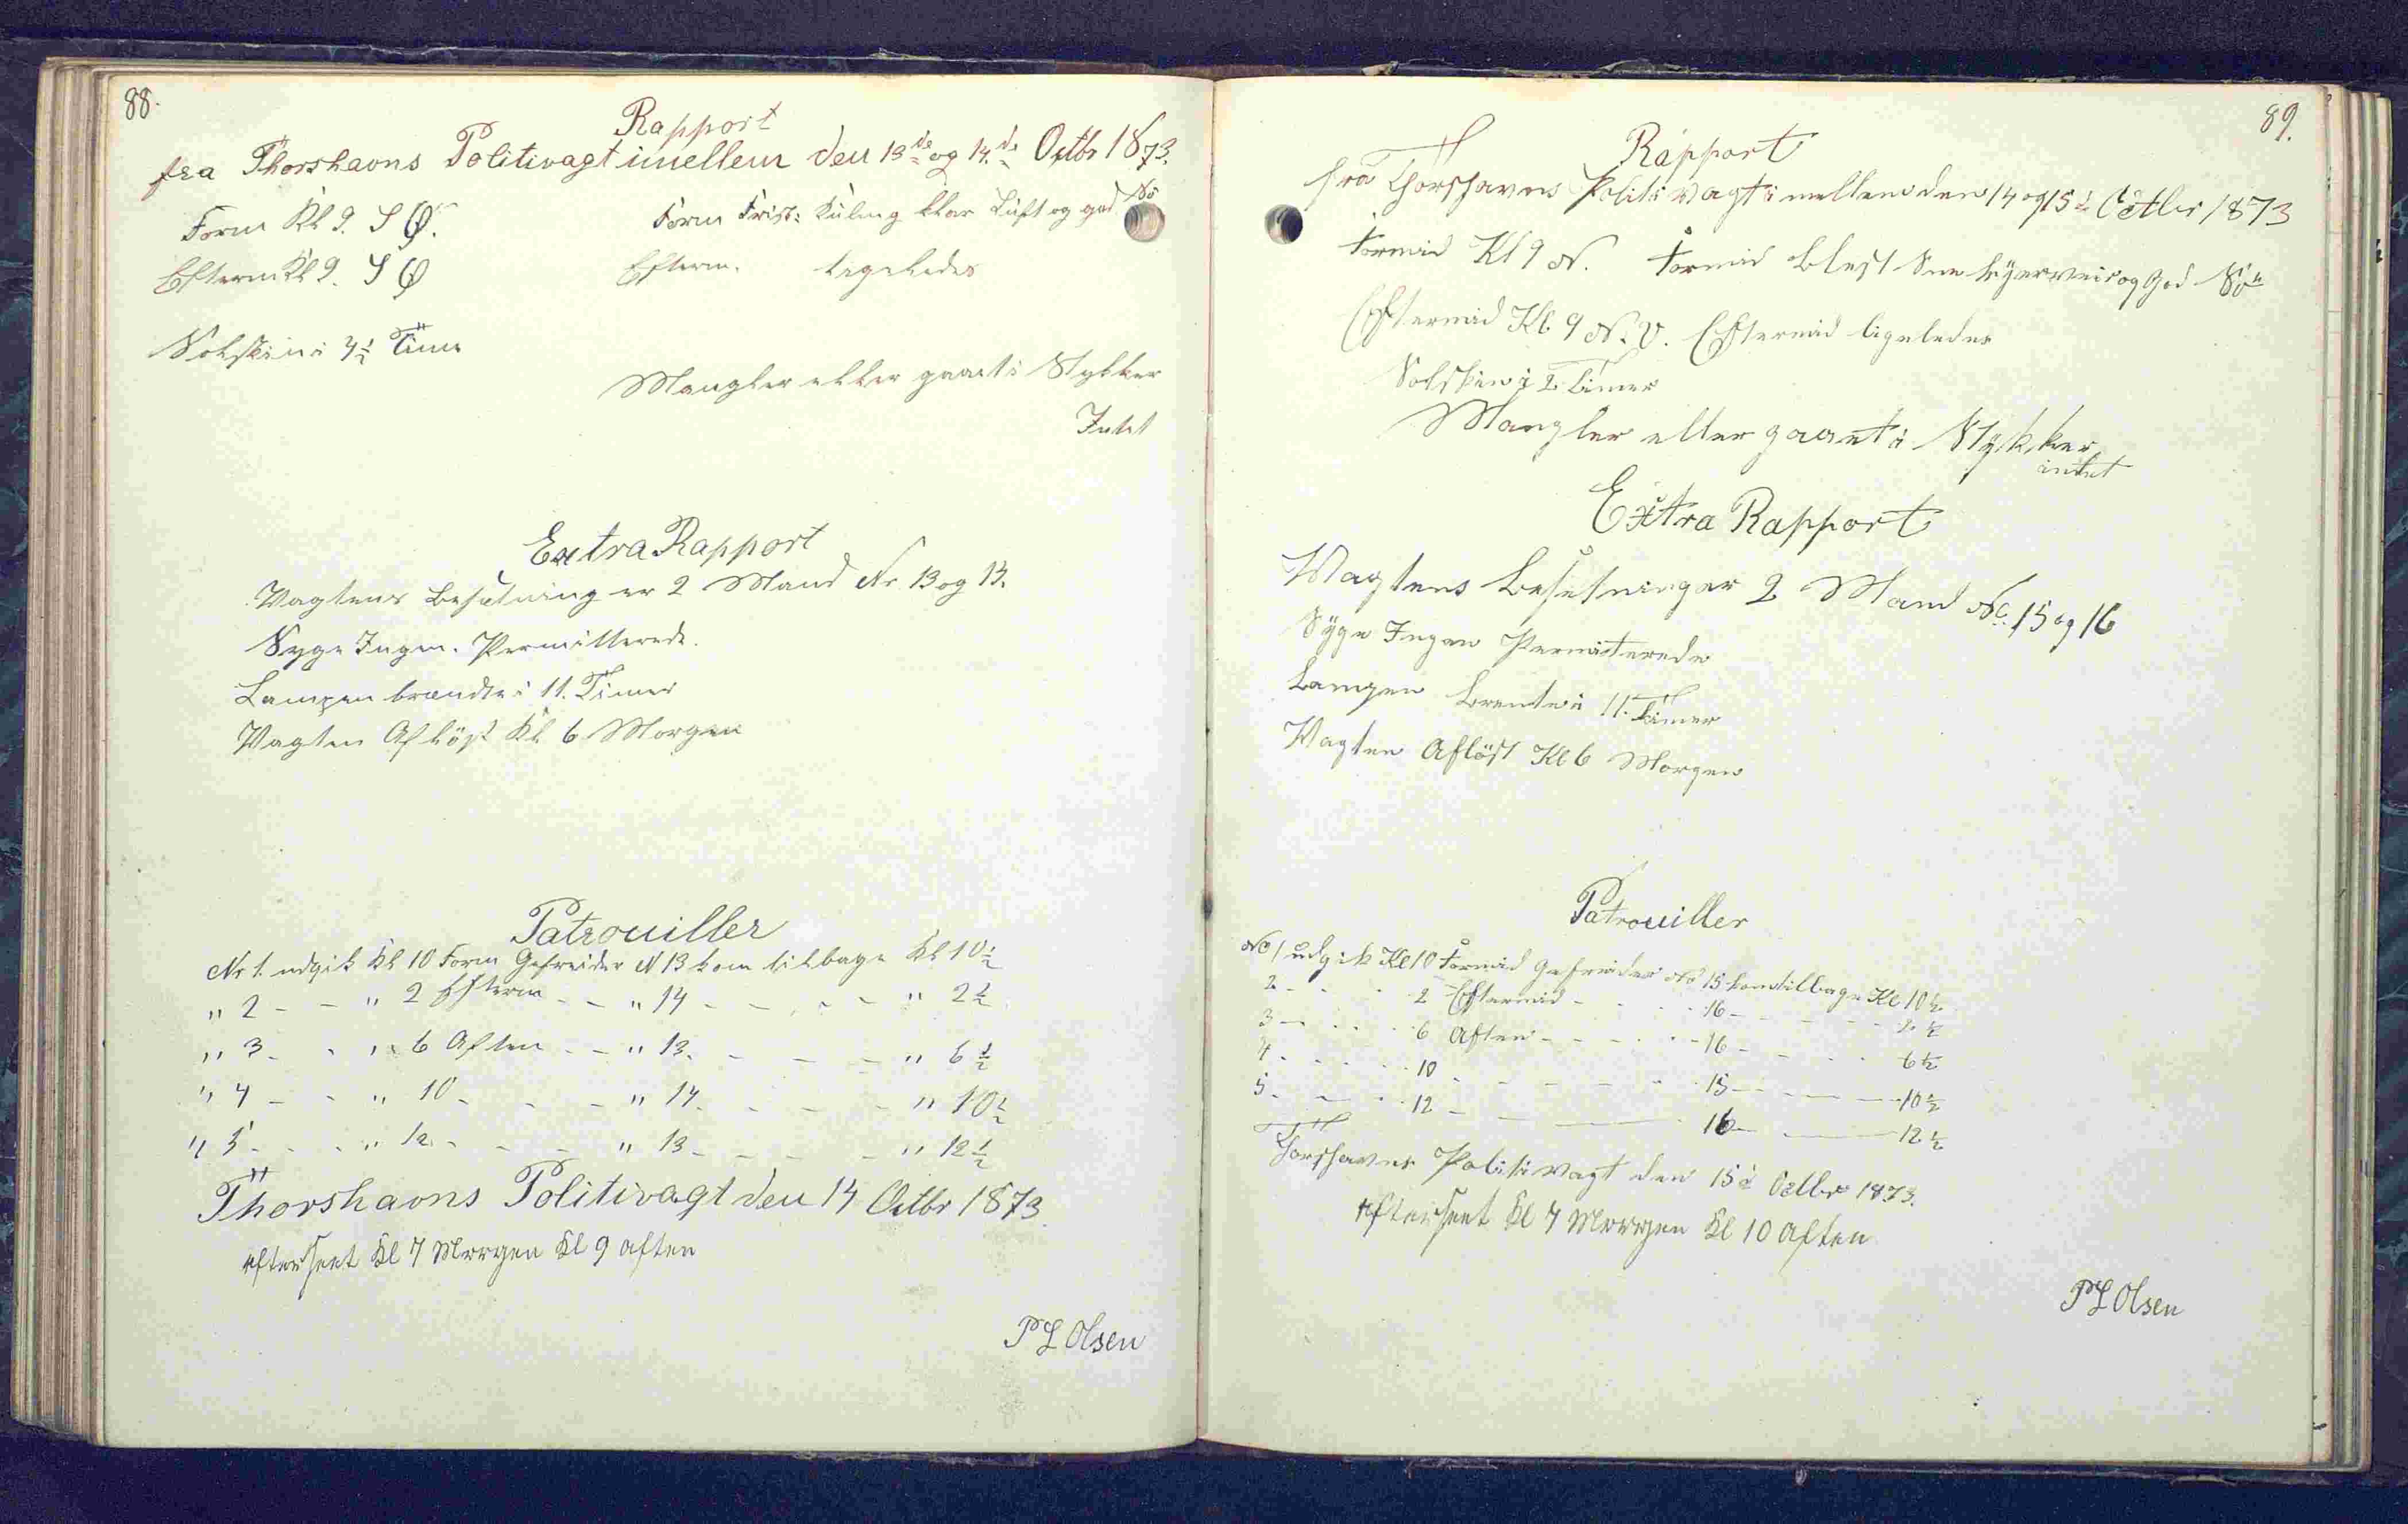 88.
Rapport
fra Thorshavns Politivagt imellem den 13de og 14.de Octbr 1873.
Form Kl 9. S Ø. Form Frisk Kuling klar Luft og god Sö
Efterm Kl 9. S Ø Efterm. ligeledes
Solskin i 4½ Time
Mangler eller gaaet i Stykker
Intet
Extra Rapport
Vagtens Besætning er 2 Mand Nr 13 og 14.
Syge Ingen. Permitterede.
Lampen brændte i 11. Timer
Vagten Aflöst Kl 6 Morgen
Patrouiller
Nr 1. udgik Kl 10 Form Gefreider N 13 kom tilbage Kl 10½
" 2 - - " 2 Efterm - - " 14 - - - - " 2½
" 3 - - " 6 Aften - - " 13. - - - " 6½
" 4 - - " 10 - - - " 14. - - - " 10½
" 5 - - " 12. - - - " 13 - - - - " 12½
Thorshavns Politivagt den 14 Octbr 1873.
Efterseet Kl 7 Morgen Kl 9 aften
P L Olsen
89.
Rapport
fra Thorshavns Politivagt imellem den 14 og 15d Octbr 1873
Formid Kl 9 N. Formid Blest Sne byerveir og God Sö
Eftermid Kl. 9 N. V. Eftermid ligeledes
Solskin i 2 Timer
Mangler eller gaaet i Stykker
intet
Extra Rapport
Vagtens Besetning er 2 Mand No. 15 og 16
Syge Ingen Permiterede
Lampen Brente i 11. Timer
Vagten Aflöst Kl 6 Morgen
Patrouiller
No 1 udgik Kl 10 Formid Gefreider No 15 kom tilbage Kl 10½
2 - - - 2 Eftermid - - - 16 - - - - 2½
3 - - - 6 Aften - - - - 16 - - - - 6½
4 - - - 10 - - - - 15 - - - 10½
5 - - - 12 - - - 16 - - 12½
Thorshavns Politivagt den 15d Octbr 1873.
Efterseet Kl 7 Morgen Kl 10 Aften
P L Olsen